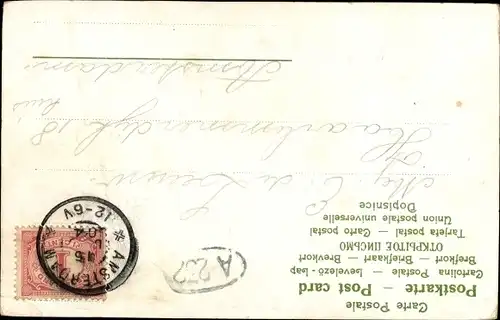 Carte Postale
Postkarte — Post card
Cartolina Postale — Levelező-Lap
Brefkort — Briefkaart — Brevkort
ОТКРЫТОЕ ПИСЬМО
Tarjeta postal — Carto postal
Union postale universelle
Dopisnice
A 237
AMSTERDAM
04
12-6V
de Leeuw
Haarlemmerdijk 18
huis
Amsterdam